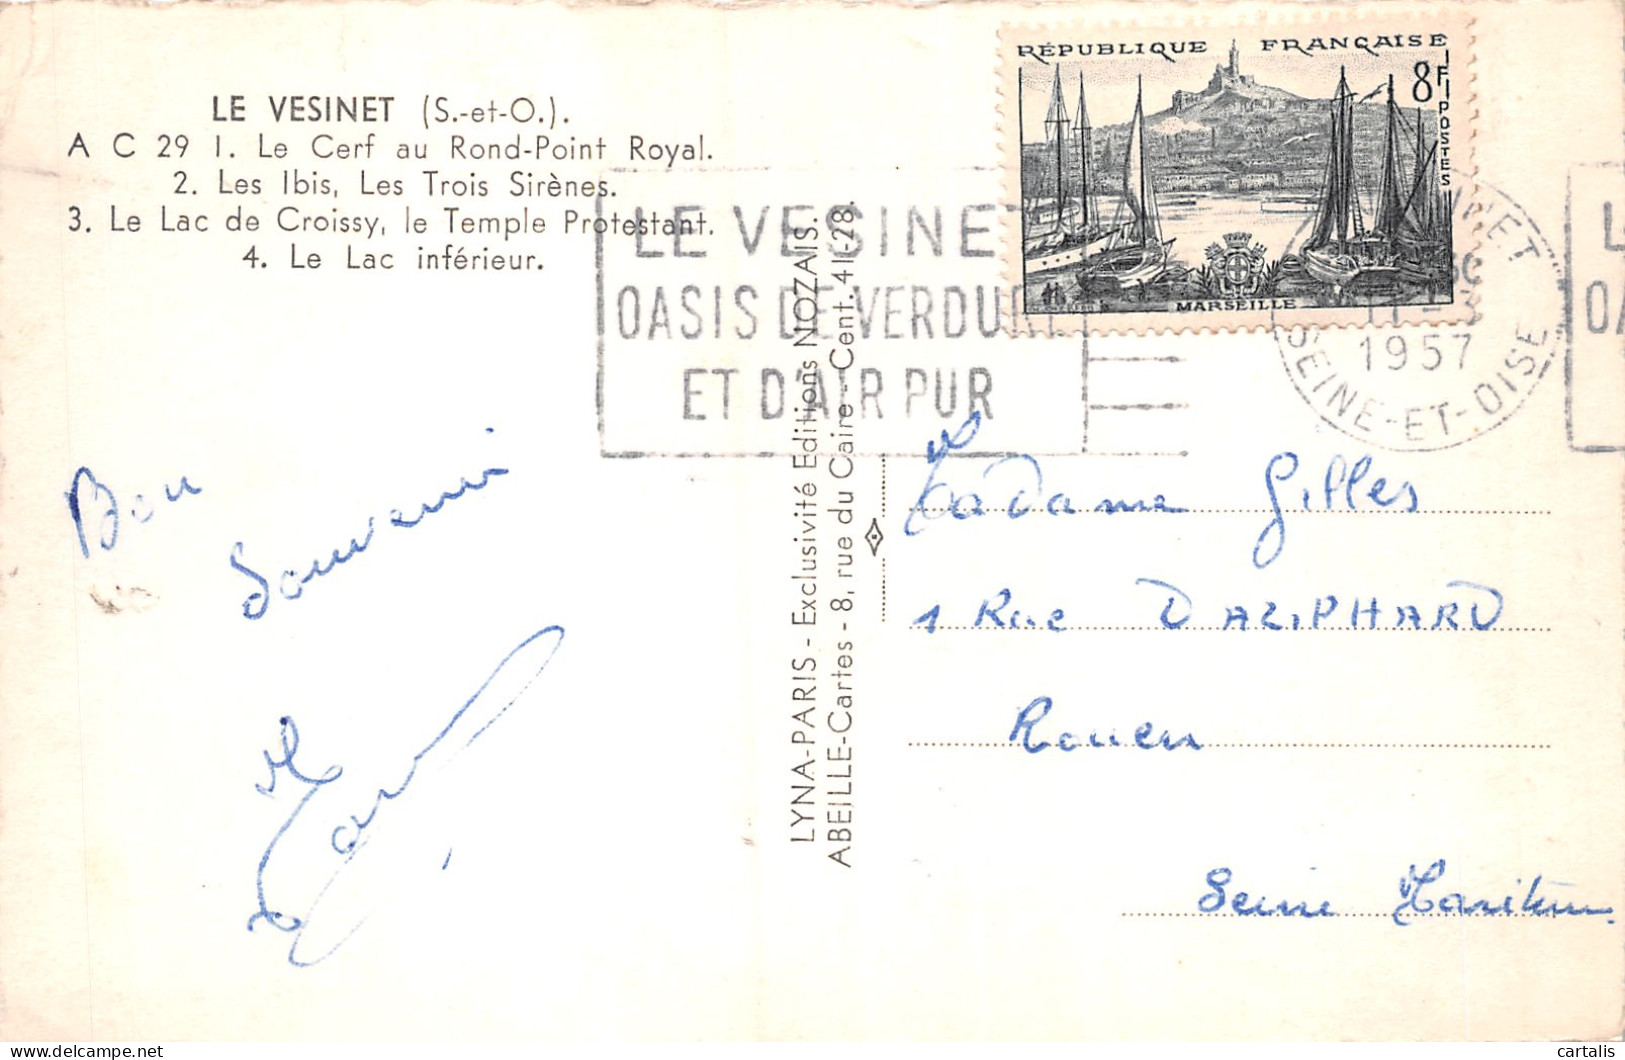 LE VESINET (S.-et-O.).
A C 29 1. Le Cerf au Rond-Point Royal.
2. Les Ibis, Les Trois Sirènes.
3. Le Lac de Croissy, le Temple Protestant.
4. Le Lac inférieur.
RÉPUBLIQUE FRANÇAISE
8F
POSTES
MARSEILLE
LE VESINET
OASIS DE VERDURE
ET D'AIR PUR
1957
SEINE-ET-OISE
L
OA
Bon
Souvenir
LYNA-PARIS - Exclusivité Editions NOZAIS.
ABEILLE-Cartes - 8, rue du Caire - Cent. 41-28.
Madame Gilles
1 Rue DAZIPHARD
Rouen
Seine Maritime
cartalis